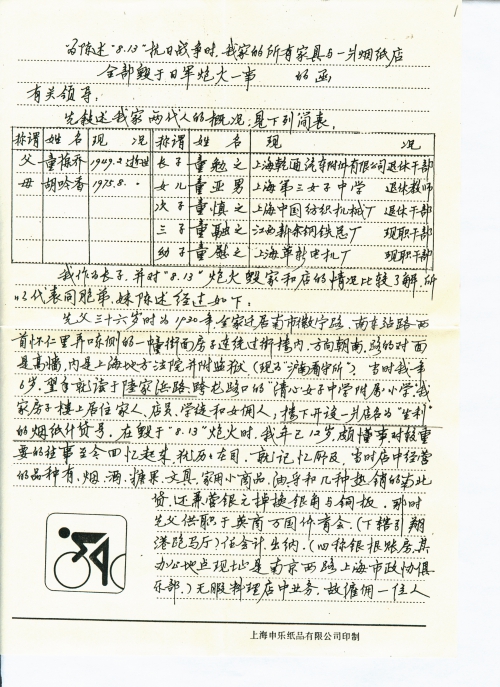 为陈述"8.13"抗日战事时,我家的所有家具与一片烟纸店
全部毁于日军炮火一事 的函
有关领导:
先叙述我家两代人的概况,见下列简表。
称谓 姓名 现况 称谓 姓名 现况
父 童振乔 1949.2逝世 长子 童勉之 上海乾通汽车附件有限公司退休干部
母 胡吟香 1975.8. 〃 女儿 童亚男 上海第三女子中学 退休教师
次子 童慎之 上海中国纺织机械厂 退休干部
三子 童融之 江西新余钢铁总厂 现职干部
幼子 童慰之 上海革新电机厂 现职干部
我作为长子,并对"8.13"炮火毁家和店的情况比较了解,所
以代表同胞弟、妹陈述经过如下:
先父三十六岁时为1930年全家迁居南市徽宁路、南车站路西
首怀仁里弄口东侧的一幢街面房子连统过街楼内,方向朝南,路的对面
是高墙,内是上海地方法院并附监狱(现为沪南看守所)。当时我年
6岁,翌年就读于陆家浜路跨龙路口的"清心女子中学附属小学"。我
家房子楼上居住家人、店员、学徒和女佣人;楼下开设一片店名为"生利"
的烟纸什货号。在毁于"8.13"炮火时,我年已12岁,颇懂事对较重
要的往事至今回忆起来,
当时店中经营
的品种有:烟、酒、糖果、文具、家用小商品
和几种热销的南北
货,还兼营银元掉换银角与铜板。那时
先父供职于英商万国体育会(下辖引翔
港跑马厅)任会计、出纳。(回称银根账房,其
办公地点现址是南京西路上海市政协俱
乐部。)无暇料理店中业务,故雇佣一位人
上海申乐纸品有限公司印制